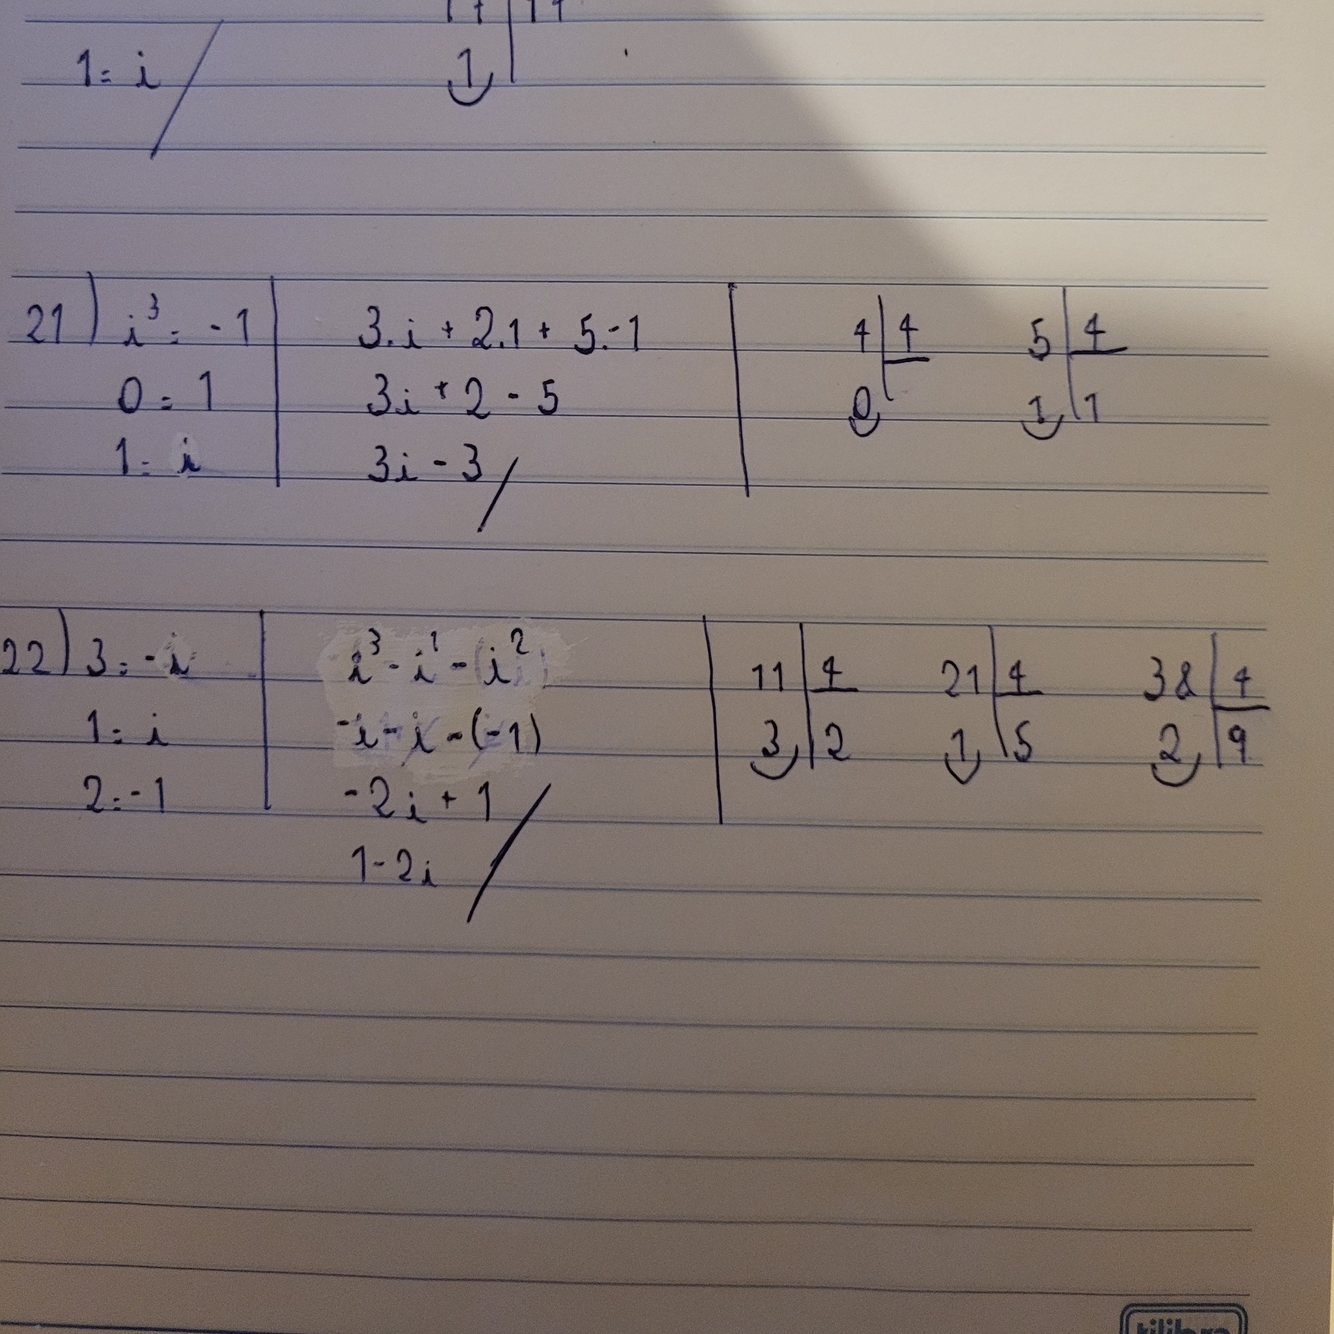 1 = i
1
21) i³ = -1
0 = 1
1 = i
3.i + 2.1 + 5.-1
3i + 2 - 5
3i - 3
4 4
0
5 4
1 1
22) 3 = -i
1 = i
2 = -1
i³ - i¹ - (i²)
-i - i - (-1)
-2i + 1
1 - 2i
11 4
3 2
21 4
1 5
38 4
2 9